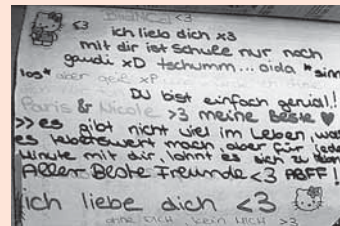 BiaNCa <3
<3 ich lieb dich x3
mit dir ist schule nur noch
gaudi xD tschumm... oida *sinn
los* aber geil xP
Du bist einfach genial!
Paris & Nicole >3 meine Beste ♥
>> es gibt nicht viel im Leben, was
es lebenswert mach, aber für jede
Minute mit dir, lohnt es sich zu
Aller Beste Freunde <3 ABFF!
ich liebe dich <3
ohne DICH, kein MICH >3